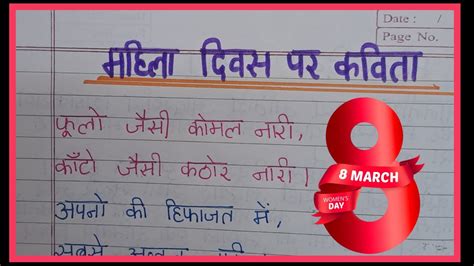 Date : /
Page No.
महिला दिवस पर कविता
फूलो जैसी कोमल नारी,
काँटो जैसी कठोर नारी।
अपनो की हिफाजत में,
सबसे
8 MARCH
WOMEN'S
DAY